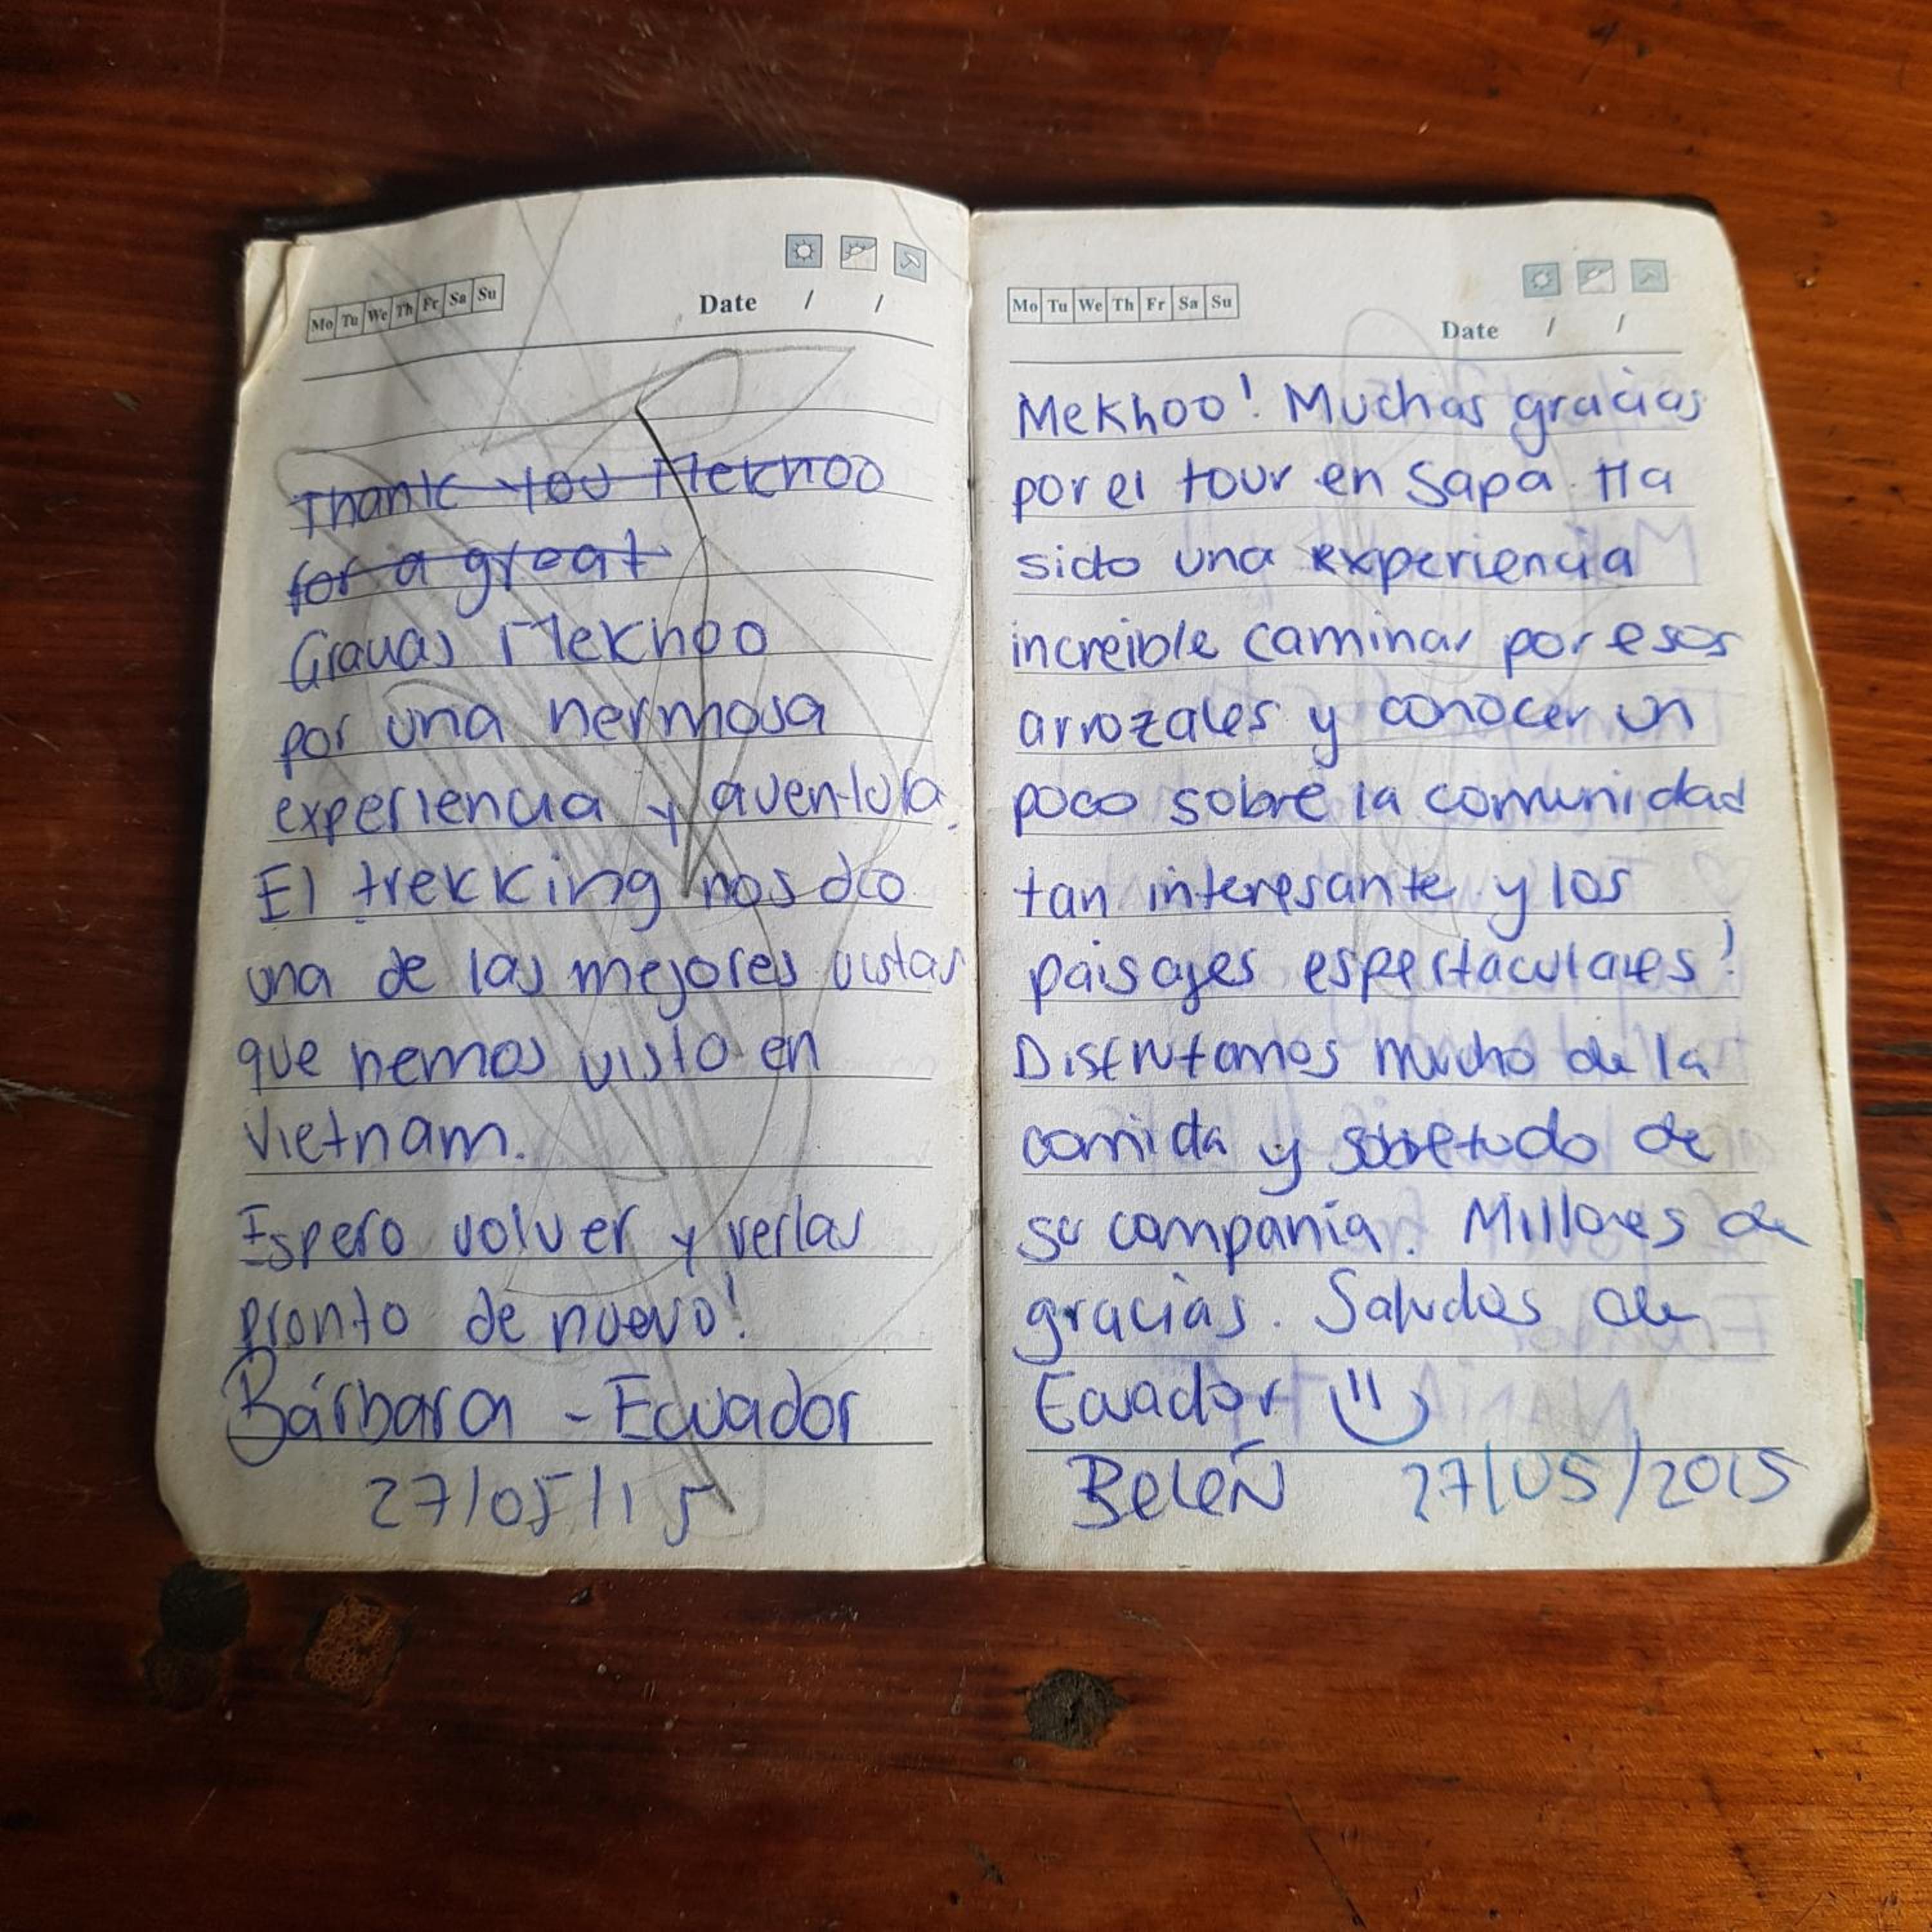 Mo Tu We Th Fr Sa Su
Date / /
Thank you Mekhoo
for a great
Gracias Mekhoo
por una hermosa
experiencia y aventura.
El trekking nos dio
una de las mejores vistas
que hemos visto en
Vietnam.
Espero volver y verlas
pronto de nuevo!
Bárbara - Ecuador
27/05/15
Mo Tu We Th Fr Sa Su
Date / /
Mekhoo! Muchas gracias
por el tour en Sapa. Ha
sido una experiencia
increible caminar por esos
arrozales y conocer un
poco sobre la comunidad
tan interesante y los
paisajes espectaculares!
Disfrutamos mucho de la
comida y sobretodo de
su compania. Millones de
gracias. Saludos de
Ecuador
Belén 27/05/2015